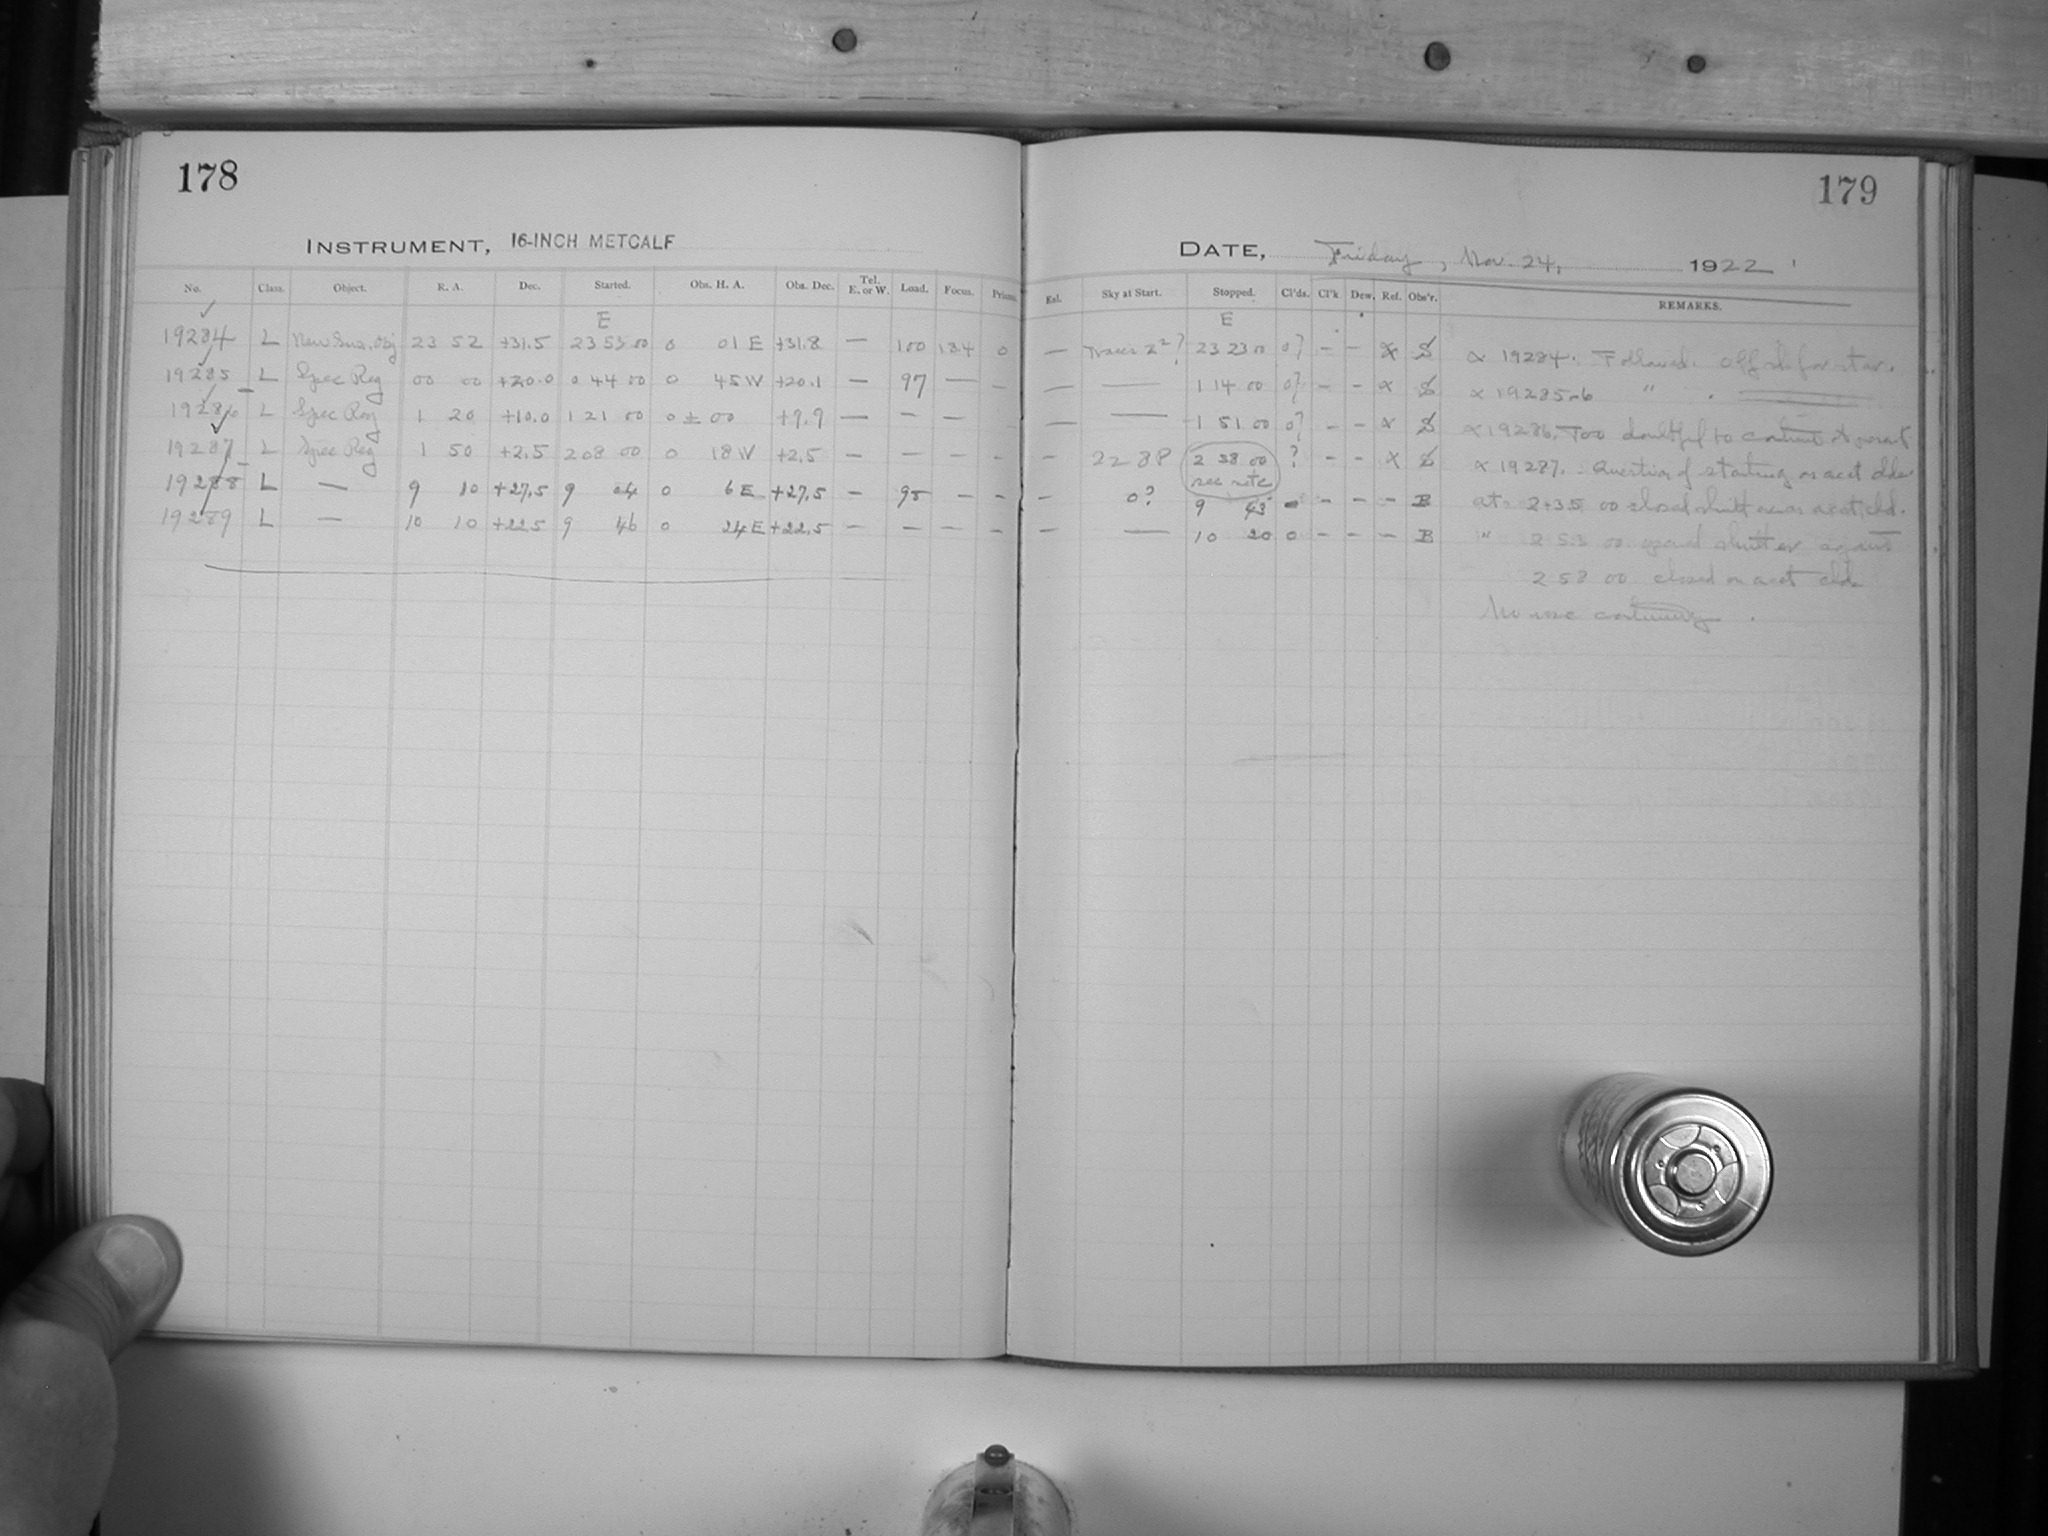 178
INSTRUMENT, 16-INCH METCALF
No. Class. Object. R. A. Dec. Started. Obs. H. A. Obs. Dec. Tel. E. or W. Load. Focus. Prism.
E
19284 L New Sus. obj 23 52 +31.5 23 53 00 0 01 E +31.8 — 100 134 0
19285 L Spec Reg 00 00 +20.0 0 44 00 0 45 W +20.1 — 97 — –
19286 L Spec Reg 1 20 +10.0 1 21 00 0 ± 00 +9.9 — – —
19287 L Spec Reg 1 50 +2.5 2 08 00 0 18 W +2.5 – – – –
19288 L — 9 10 +27.5 9 04 0 6 E +27.5 – 95 – –
19289 L — 10 10 +22.5 9 46 0 24 E +22.5 – – – –
179
DATE, Friday, Nov. 24, 1922
Exl. Sky at Start. Stopped. Cl'ds. Cl'k Dew. Ref. Obs'r. REMARKS.
E
— 23 23 00 0? – – α 19284. Followed. off sh for star.
— — 1 14 00 0? – – α 19285-6 " .
— — 1 51 00 0? – – α 19286. Too doubtful to continue at present
– 22 38 2 38 00 ? – – α 19287. Question of starting on acct clds
see note
– 0? 9 43 – – – – B at 2+35 00 closed shutter on acct cld.
– — 10 20 0 – – – B " 2 53 00 opened shutter again
2 58 00 closed on acct cld
No use continuing.